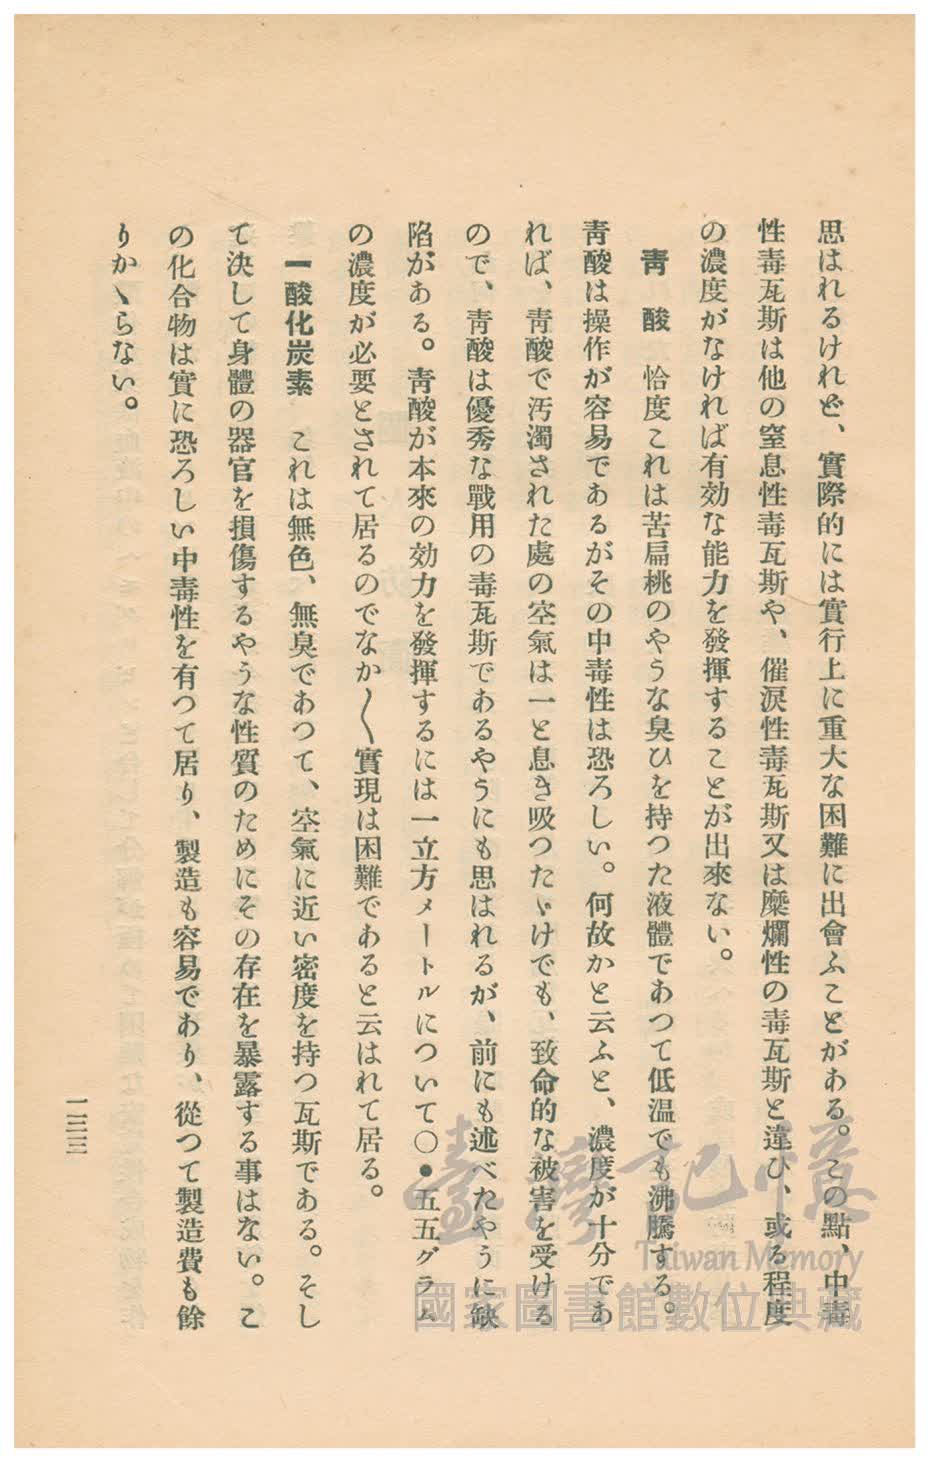 思はれるけれど、實際的には實行上に重大な困難に出會ふことがある。この點、中毒
性毒瓦斯は他の窒息性毒瓦斯や、催淚性毒瓦斯又は糜爛性の毒瓦斯と違ひ、或る程度
の濃度がなければ有効な能力を發揮することが出來ない。
靑　酸　恰度これは苦扁桃のやうな臭ひを持つた液體であつて低温でも沸騰する。
靑酸は操作が容易であるがその中毒性は恐ろしい。何故かと云ふと、濃度が十分であ
れば、靑酸で汚濁された處の空氣は一と息き吸つたゞけでも、致命的な被害を受ける
ので、靑酸は優秀な戰用の毒瓦斯であるやうにも思はれるが、前にも述べたやうに缺
陷がある。靑酸が本來の効力を發揮するには一立方メートルについて〇●五五グラム
の濃度が必要とされて居るのでなか〱實現は困難であると云はれて居る。
一酸化炭素　これは無色、無臭であつて、空氣に近い密度を持つ瓦斯である。そし
て決して身體の器官を損傷するやうな性質のためにその存在を暴露する事はない。こ
の化合物は實に恐ろしい中毒性を有つて居り、製造も容易であり、從つて製造費も餘
りかゝらない。
一三三
臺灣記憶
Taiwan Memory
國家圖書館數位典藏